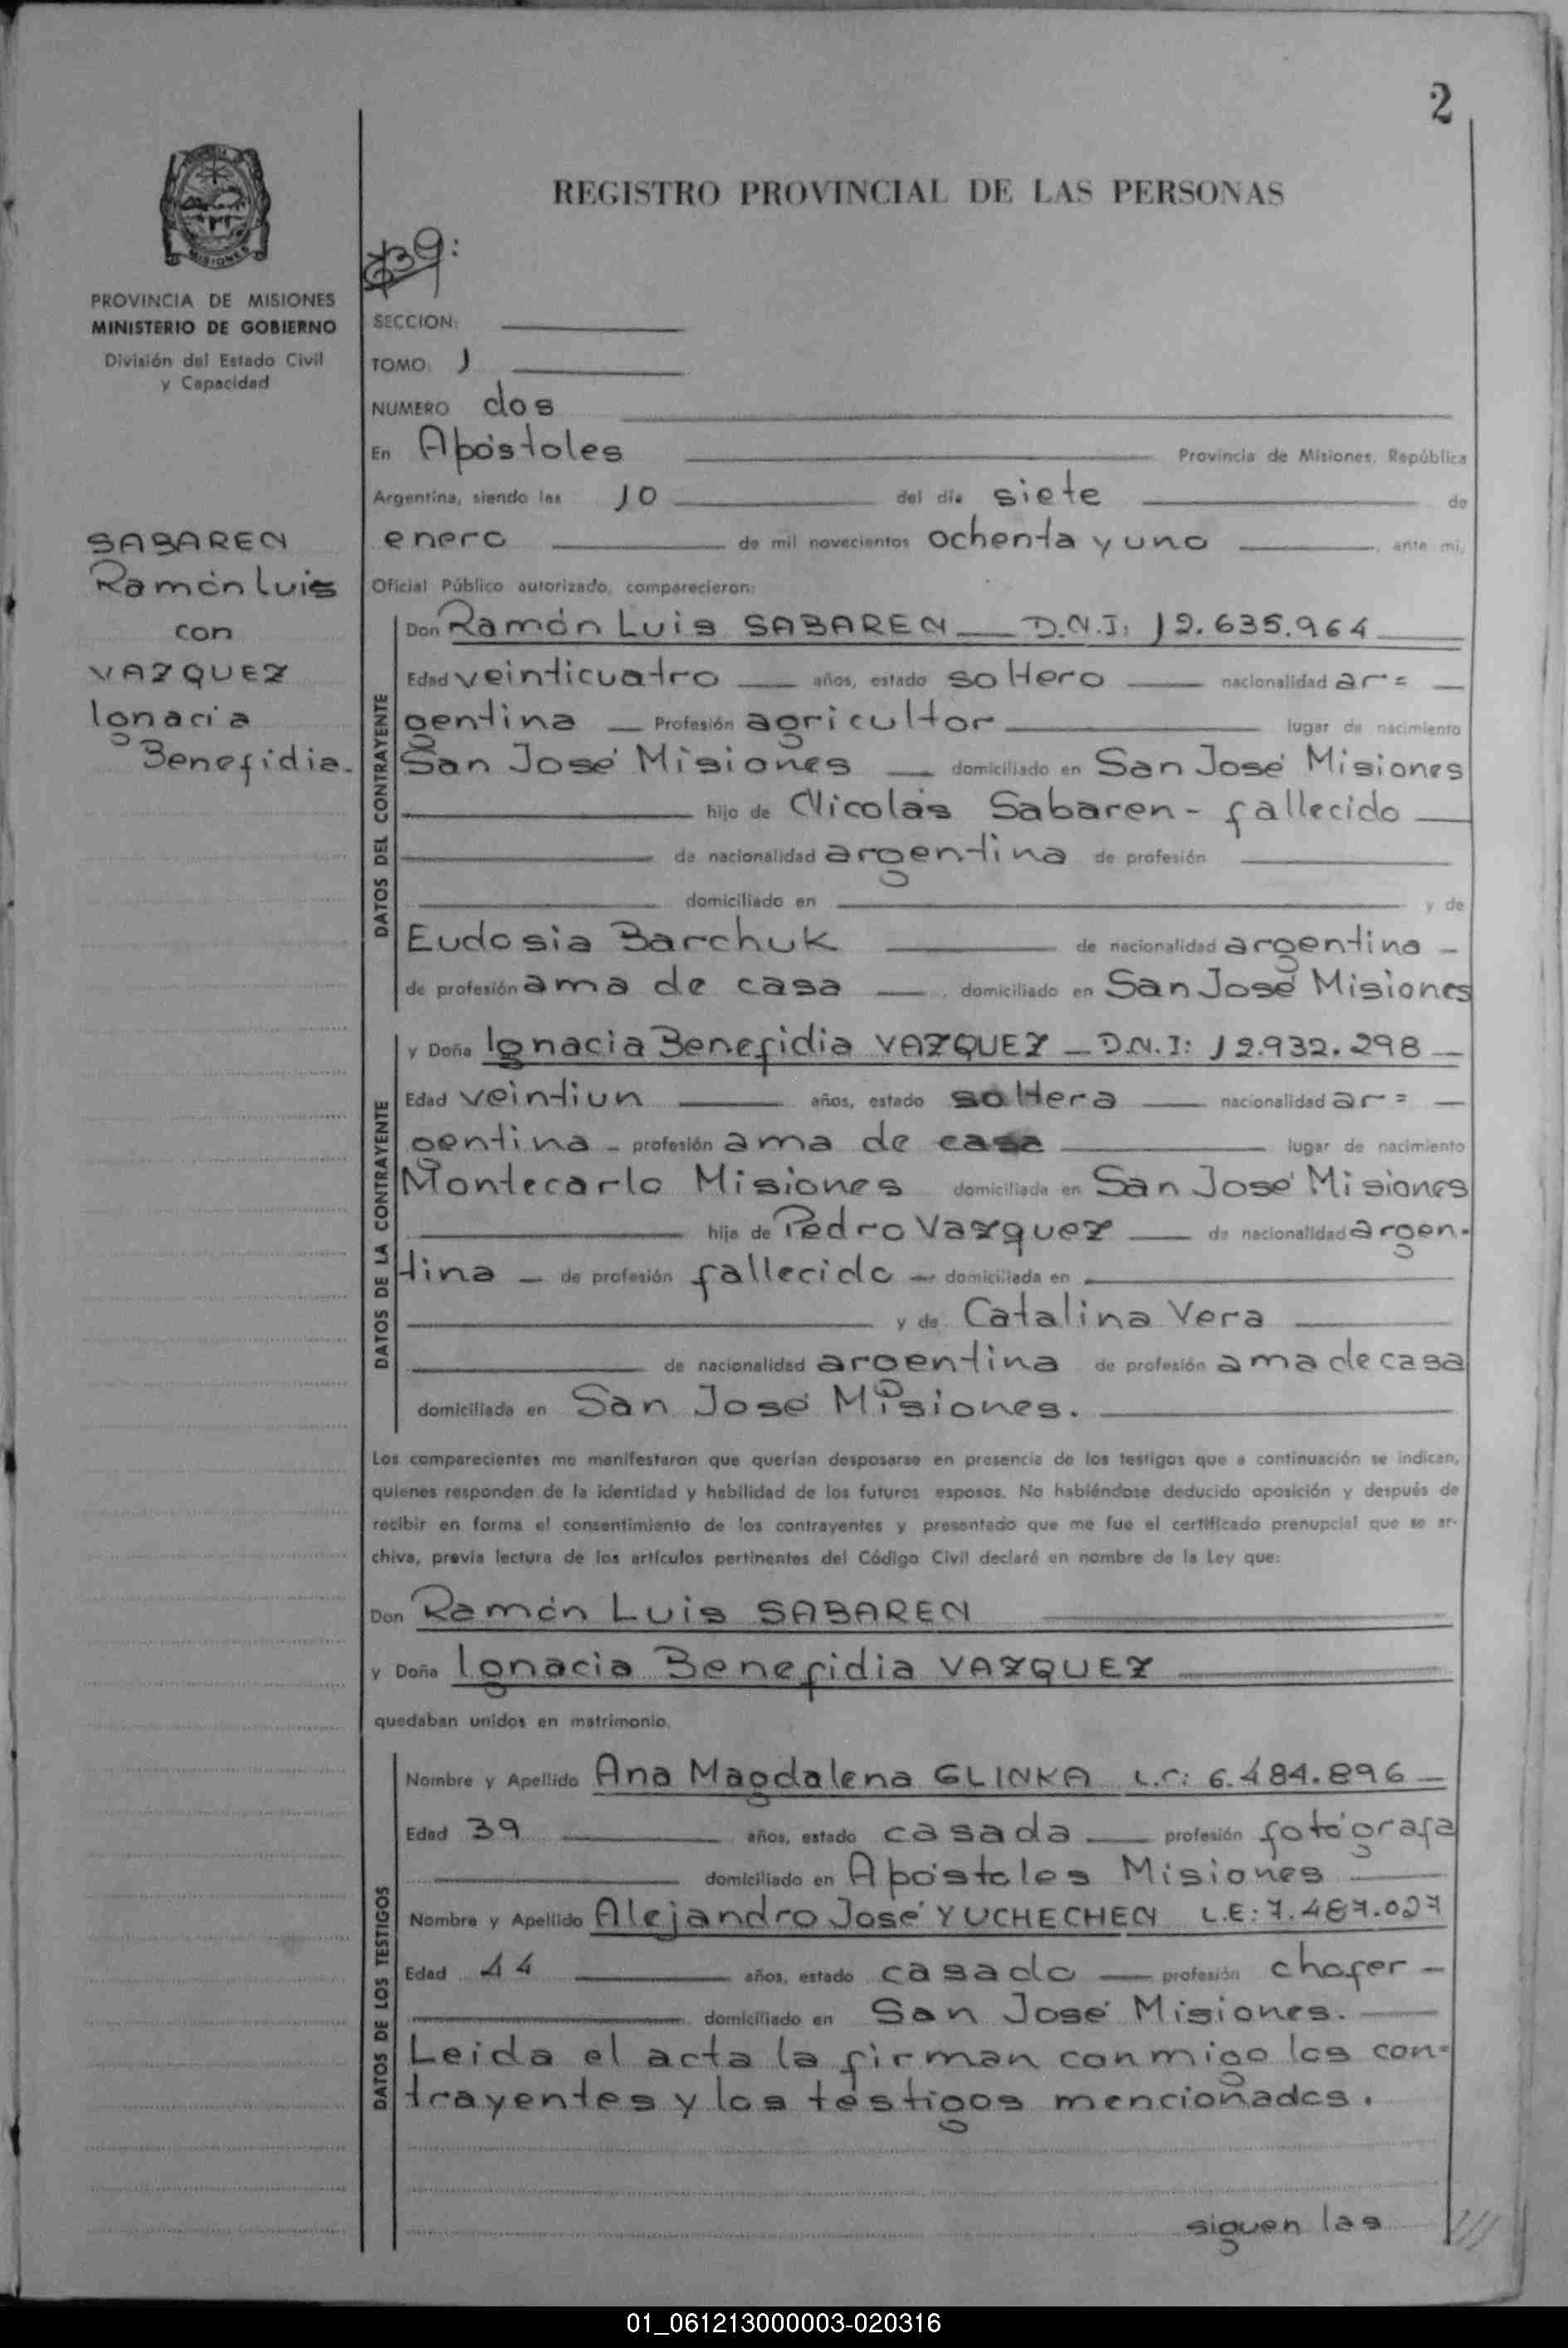 2
REGISTRO PROVINCIAL DE LAS PERSONAS
PROVINCIA DE MISIONES
MINISTERIO DE GOBIERNO
División del Estado Civil
y Capacidad
SABAREN
Ramón Luis
con
VAZQUEZ
Ignacia
Benefidia.
SECCION:
TOMO: 1
NUMERO dos
En Apóstoles Provincia de Misiones, República
Argentina, siendo las 10 del día siete de
enero de mil novecientos ochenta y uno, ante mi,
Oficial Público autorizado, comparecieron:
DATOS DEL CONTRAYENTE
Don Ramón Luis SABAREN D.N.I: 12.635.964
Edad veinticuatro años, estado soltero nacionalidad ar=
gentina Profesión agricultor lugar de nacimiento
San José Misiones domiciliado en San José Misiones
hijo de Nicolás Sabaren - fallecido
de nacionalidad argentina de profesión
domiciliado en y de
Eudosia Barchuk de nacionalidad argentina
de profesión ama de casa, domiciliado en San José Misiones
DATOS DE LA CONTRAYENTE
y Doña Ignacia Benefidia VAZQUEZ D.N.I: 12.932.298
Edad veintiun años, estado soltera nacionalidad ar=
gentina profesión ama de casa lugar de nacimiento
Montecarlo Misiones domiciliada en San José Misiones
hija de Pedro Vazquez de nacionalidad argen-
tina de profesión fallecido domiciliada en
y de Catalina Vera
de nacionalidad argentina de profesión ama de casa
domiciliada en San José Misiones.
Los comparecientes me manifestaron que querían desposarse en presencia de los testigos que a continuación se indican,
quienes responden de la identidad y habilidad de los futuros esposos. No habiéndose deducido oposición y después de
recibir en forma el consentimiento de los contrayentes y presentado que me fue el certificado prenupcial que se ar-
chiva, previa lectura de los artículos pertinentes del Código Civil declaré en nombre de la Ley que:
Don Ramón Luis SABAREN
y Doña Ignacia Benefidia VAZQUEZ
quedaban unidos en matrimonio.
DATOS DE LOS TESTIGOS
Nombre y Apellido Ana Magdalena GLINKA L.C: 6.484.896
Edad 39 años, estado casada profesión fotógrafa
domiciliado en Apóstoles Misiones
Nombre y Apellido Alejandro José YUCHECHEN L.E: 7.487.027
Edad 44 años, estado casado profesión chofer
domiciliado en San José Misiones.
Leida el acta la firman conmigo los con-
trayentes y los testigos mencionados.
siguen las ///
01_061213000003-020316